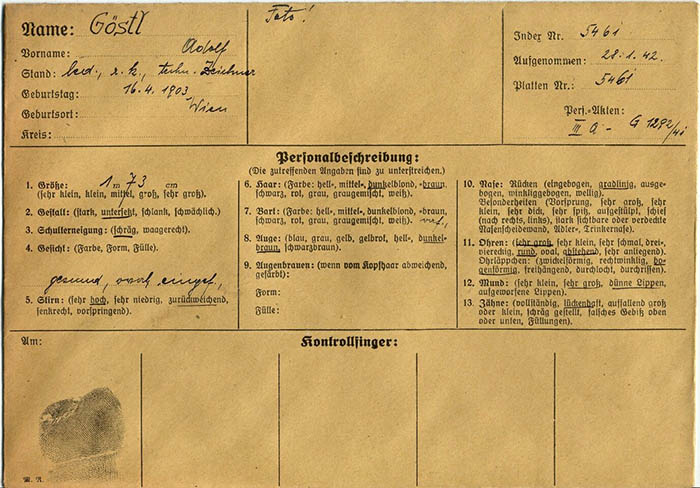 Name: Göstl
Vorname: Adolf
Stand: led., r. k., techn. Zeichner
Geburtstag: 16.4.1903
Geburtsort: Wien
Kreis:
Foto!
Index Nr. 5461
Aufgenommen: 28.1.42.
Platten Nr.: 5461
Pers.-Akten:
III a - G 1292/41
Personalbeschreibung:
(Die zutreffenden Angaben sind zu unterstreichen.)
1. Größe: 1 m 73 cm
(sehr klein, klein, mittel, groß, sehr groß).
2. Gestalt: (stark, untersetzt, schlank, schwächlich).
3. Schulterneigung: (schräg, waagerecht).
4. Gesicht: (Farbe, Form, Fülle).
gesund, oval,
5. Stirn: (sehr hoch, sehr niedrig, zurückweichend,
senkrecht, vorspringend).
6. Haar: (Farbe: hell-, mittel-, dunkelblond, -braun,
schwarz, rot, grau, graugemischt, weiß).
7. Bart: (Farbe: hell-, mittel-, dunkelblond, -braun,
schwarz, rot, grau, graugemischt, weiß).
8. Auge: (blau, grau, gelb, gelbrot, hell-, dunkel-
braun, schwarzbraun).
9. Augenbrauen: (wenn vom Kopfhaar abweichend,
gefärbt):
Form:
Fülle:
10. Nase: Rücken (eingebogen, gradlinig, ausge-
bogen, winkliggebogen, wellig).
Besonderheiten (Vorsprung, sehr groß, sehr
klein, sehr dick, sehr spitz, aufgestülpt, schief
(nach rechts, links), stark sichtbare oder verdeckte
Nasenscheidewand, Adler-, Trinkernase).
11. Ohren: (sehr groß, sehr klein, sehr schmal, drei-,
viereckig, rund, oval, abstehend, sehr anliegend).
Ohrläppchen: (zwickelförmig, rechtwinklig, bo-
genförmig, freihängend, durchlocht, durchrissen).
12. Mund: (sehr klein, sehr groß, dünne Lippen,
aufgeworfene Lippen).
13. Zähne: (vollständig, lückenhaft, auffallend groß
oder klein, schräg gestellt, falsches Gebiß oben
oder unten, Füllungen).
Am:
Kontrollfinger: